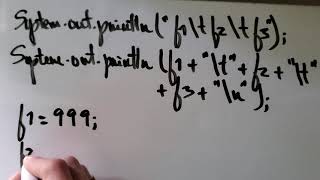 System.out.println("f1\t f2\t f3");
System.out.println(f1 + "\t" + f2 + "\t"
+ f3 + "\n");
f1 = 999;
f2